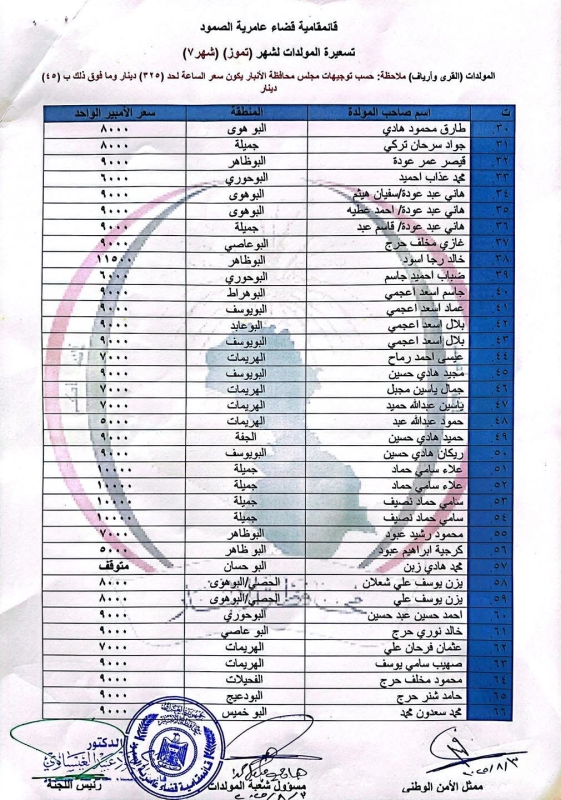 قائمقامية قضاء عامرية الصمود
تسعيرة المولدات لشهر (تموز) (شهر٧)
المولدات (القرى وأرياف) ملاحظة: حسب توجيهات مجلس محافظة الأنبار يكون سعر الساعة لحد (٣٢٥) دينار وما فوق ذلك ب (٤٥)
دينار
ت اسم صاحب المولدة المنطقة سعر الأمبير الواحد
٣٠. طارق محمود هادي البو هوى ٨٠٠٠
٣١. جواد سرحان تركي جميلة ٨٠٠٠
٣٢. قيصر عمر عودة البوظاهر ٩٠٠٠
٣٣. محمد عذاب احميد البوحوري ٦٠٠٠
٣٤. هاني عبد عودة/سفيان هيثم البوهوى ٩٠٠٠
٣٥. هاني عبد عودة/ احمد عطيه البوهوى ٩٠٠٠
٣٦. هاني عبد عودة/ قاسم عبد جميلة ٩٠٠٠
٣٧. غازي مخلف حرج البوعاصي ٩٠٠٠
٣٨. خالد رجا اسود البوظاهر ١١٥٠٠
٣٩. ضياب احميد جاسم البوحوري ٦٠٠٠
٤٠. جاسم اسعد اعجمي البوهراط ٩٠٠٠
٤١. عماد اسعد اعجمي البويوسف ٩٠٠٠
٤٢. بلال اسعد اعجمي البوعابد ٩٠٠٠
٤٣. بلال اسعد اعجمي البويوسف ٩٠٠٠
٤٤. عيسى احمد رماح الهريمات ٧٠٠٠
٤٥. مجيد هادي حسين البويوسف ٩٠٠٠
٤٦. جمال ياسين مجبل الهريمات ٧٠٠٠
٤٧. ياسين عبدالله حميد الهريمات ٧٠٠٠
٤٨. حمود عبدالله عبد الهريمات ٥٠٠٠
٤٩. حميد هادي حسين الجفة ٩٠٠٠
٥٠. ريكان هادي حسين البويوسف ٩٠٠٠
٥١. علاء سامي حماد جميلة ١٠٠٠٠
٥٢. علاء سامي حماد جميلة ١٠٠٠٠
٥٣. سامي حماد نصيف جميلة ١٠٠٠٠
٥٤. سامي حماد نصيف جميلة ١٠٠٠٠
٥٥. محمود رشيد عبود البوظاهر ٧٠٠٠
٥٦. كرجية ابراهيم عبود البو ظاهر ٥٠٠٠
٥٧. محمد هادي زبن البو حسان متوقف
٥٨. يزن يوسف علي شعلان الحصي/البوهوى ٨٠٠٠
٥٩. يزن يوسف علي الحصي/البوهوى ٨٠٠٠
٦٠. احمد حسين عبد حسين البوحوري ٩٠٠٠
٦١. خالد نوري حرج البو عاصي ٩٠٠٠
٦٢. عثمان فرحان علي الهريمات ٧٠٠٠
٦٣. صهيب سامي يوسف الهريمات ٩٠٠٠
٦٤. محمود مخلف حرج الفحيلات ٩٠٠٠
٦٥. حامد شنر حرج البودعيج ٩٠٠٠
٦٦. محمد سعدون محمد البو خميس ٩٠٠٠
الدكتور
٢٠٢٥/٨/٣
ممثل الأمن الوطني
مسؤول شعبة المولدات
رئيس اللجنة
٢٠٢٥/٨/٣